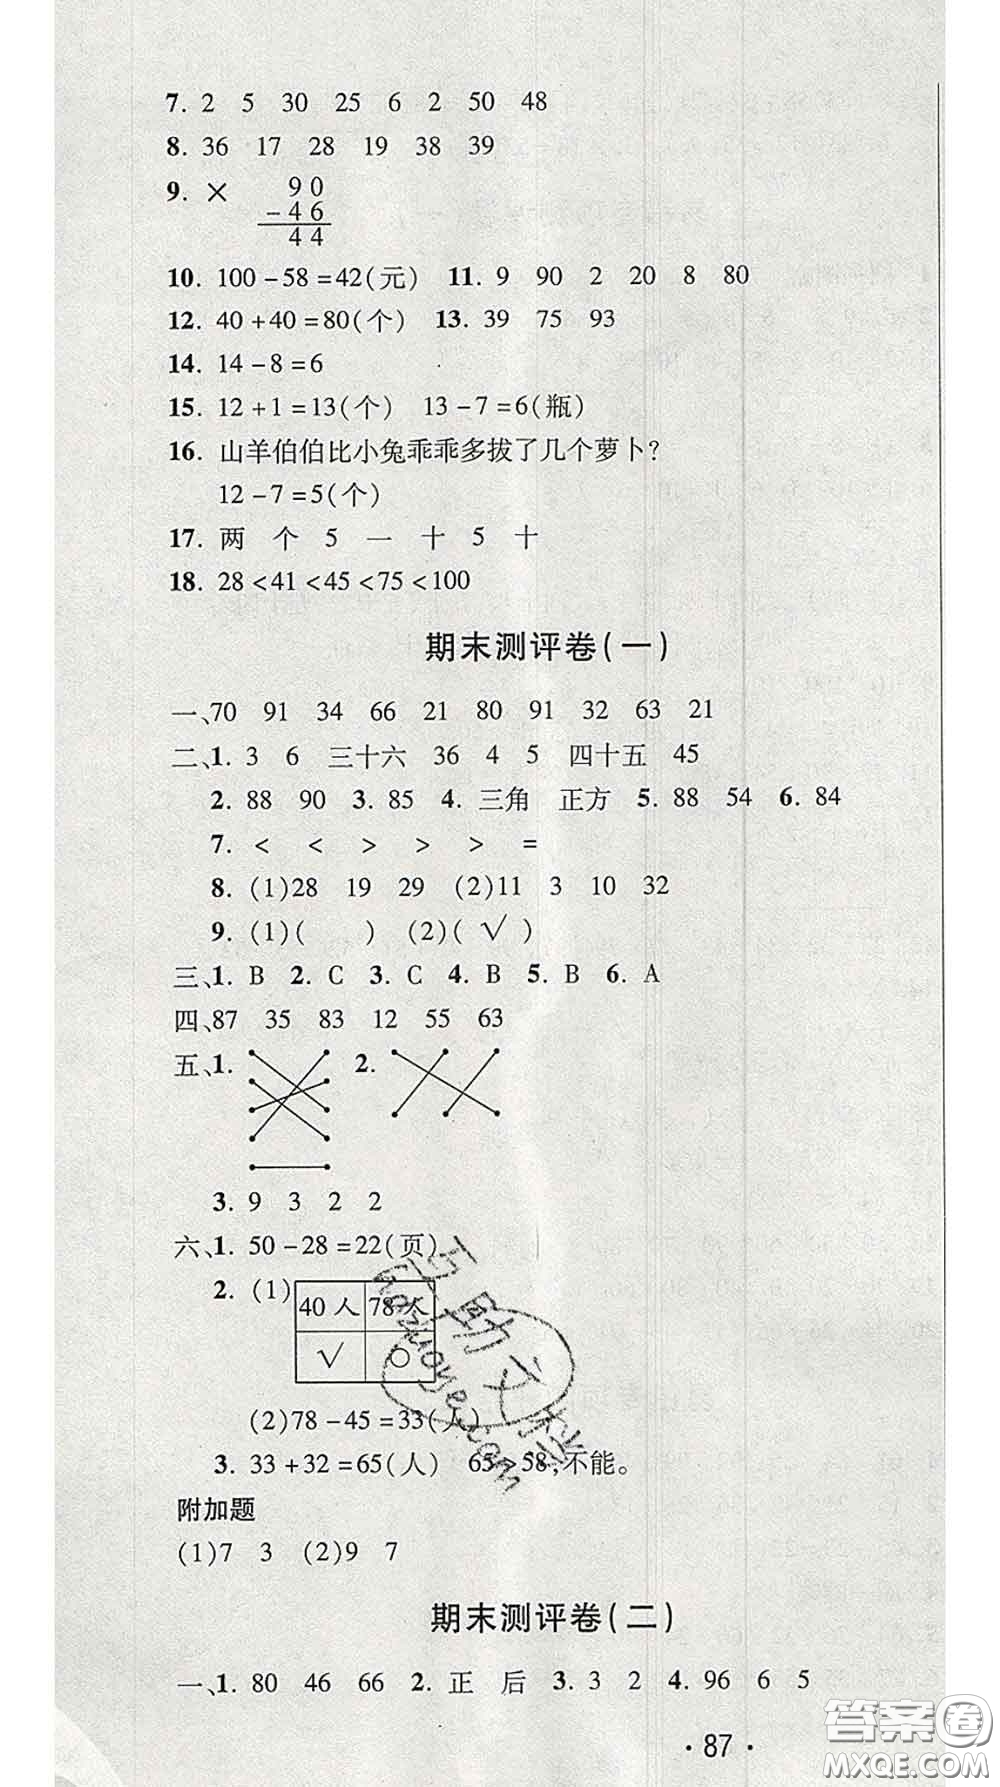 7. 2 5 30 25 6 2 50 48
8. 36 17 28 19 38 39
9. × 90
-46
44
10. 100-58=42(元) 11. 9 90 2 20 8 80
12. 40+40=80(个) 13. 39 75 93
14. 14-8=6
15. 12+1=13(个) 13-7=6(瓶)
16. 山羊伯伯比小兔乖乖多拔了几个萝卜?
12-7=5(个)
17. 两 个 5 一 十 5 十
18. 28<41<45<75<100
期末测评卷(一)
一、70 91 34 66 21 80 91 32 63 21
二、1. 3 6 三十六 36 4 5 四十五 45
2. 88 90 3. 85 4. 三角 正方 5. 88 54 6. 84
7. < < > > > =
8. (1)28 19 29 (2)11 3 10 32
9. (1)( ) (2)( √ )
三、1. B 2. C 3. C 4. B 5. B 6. A
四、87 35 83 12 55 63
五、1. 2.
3. 9 3 2 2
六、1. 50-28=22(页)
2. (1) 40人 78人
√ ○
(2)78-45=33(人)
3. 33+32=65(人) 65>58,不能。
附加题
(1)7 3 (2)9 7
期末测评卷(二)
一、1. 80 46 66 2. 正 后 3. 3 2 4. 96 6 5
· 87 ·
答案圈
MXQE.COM